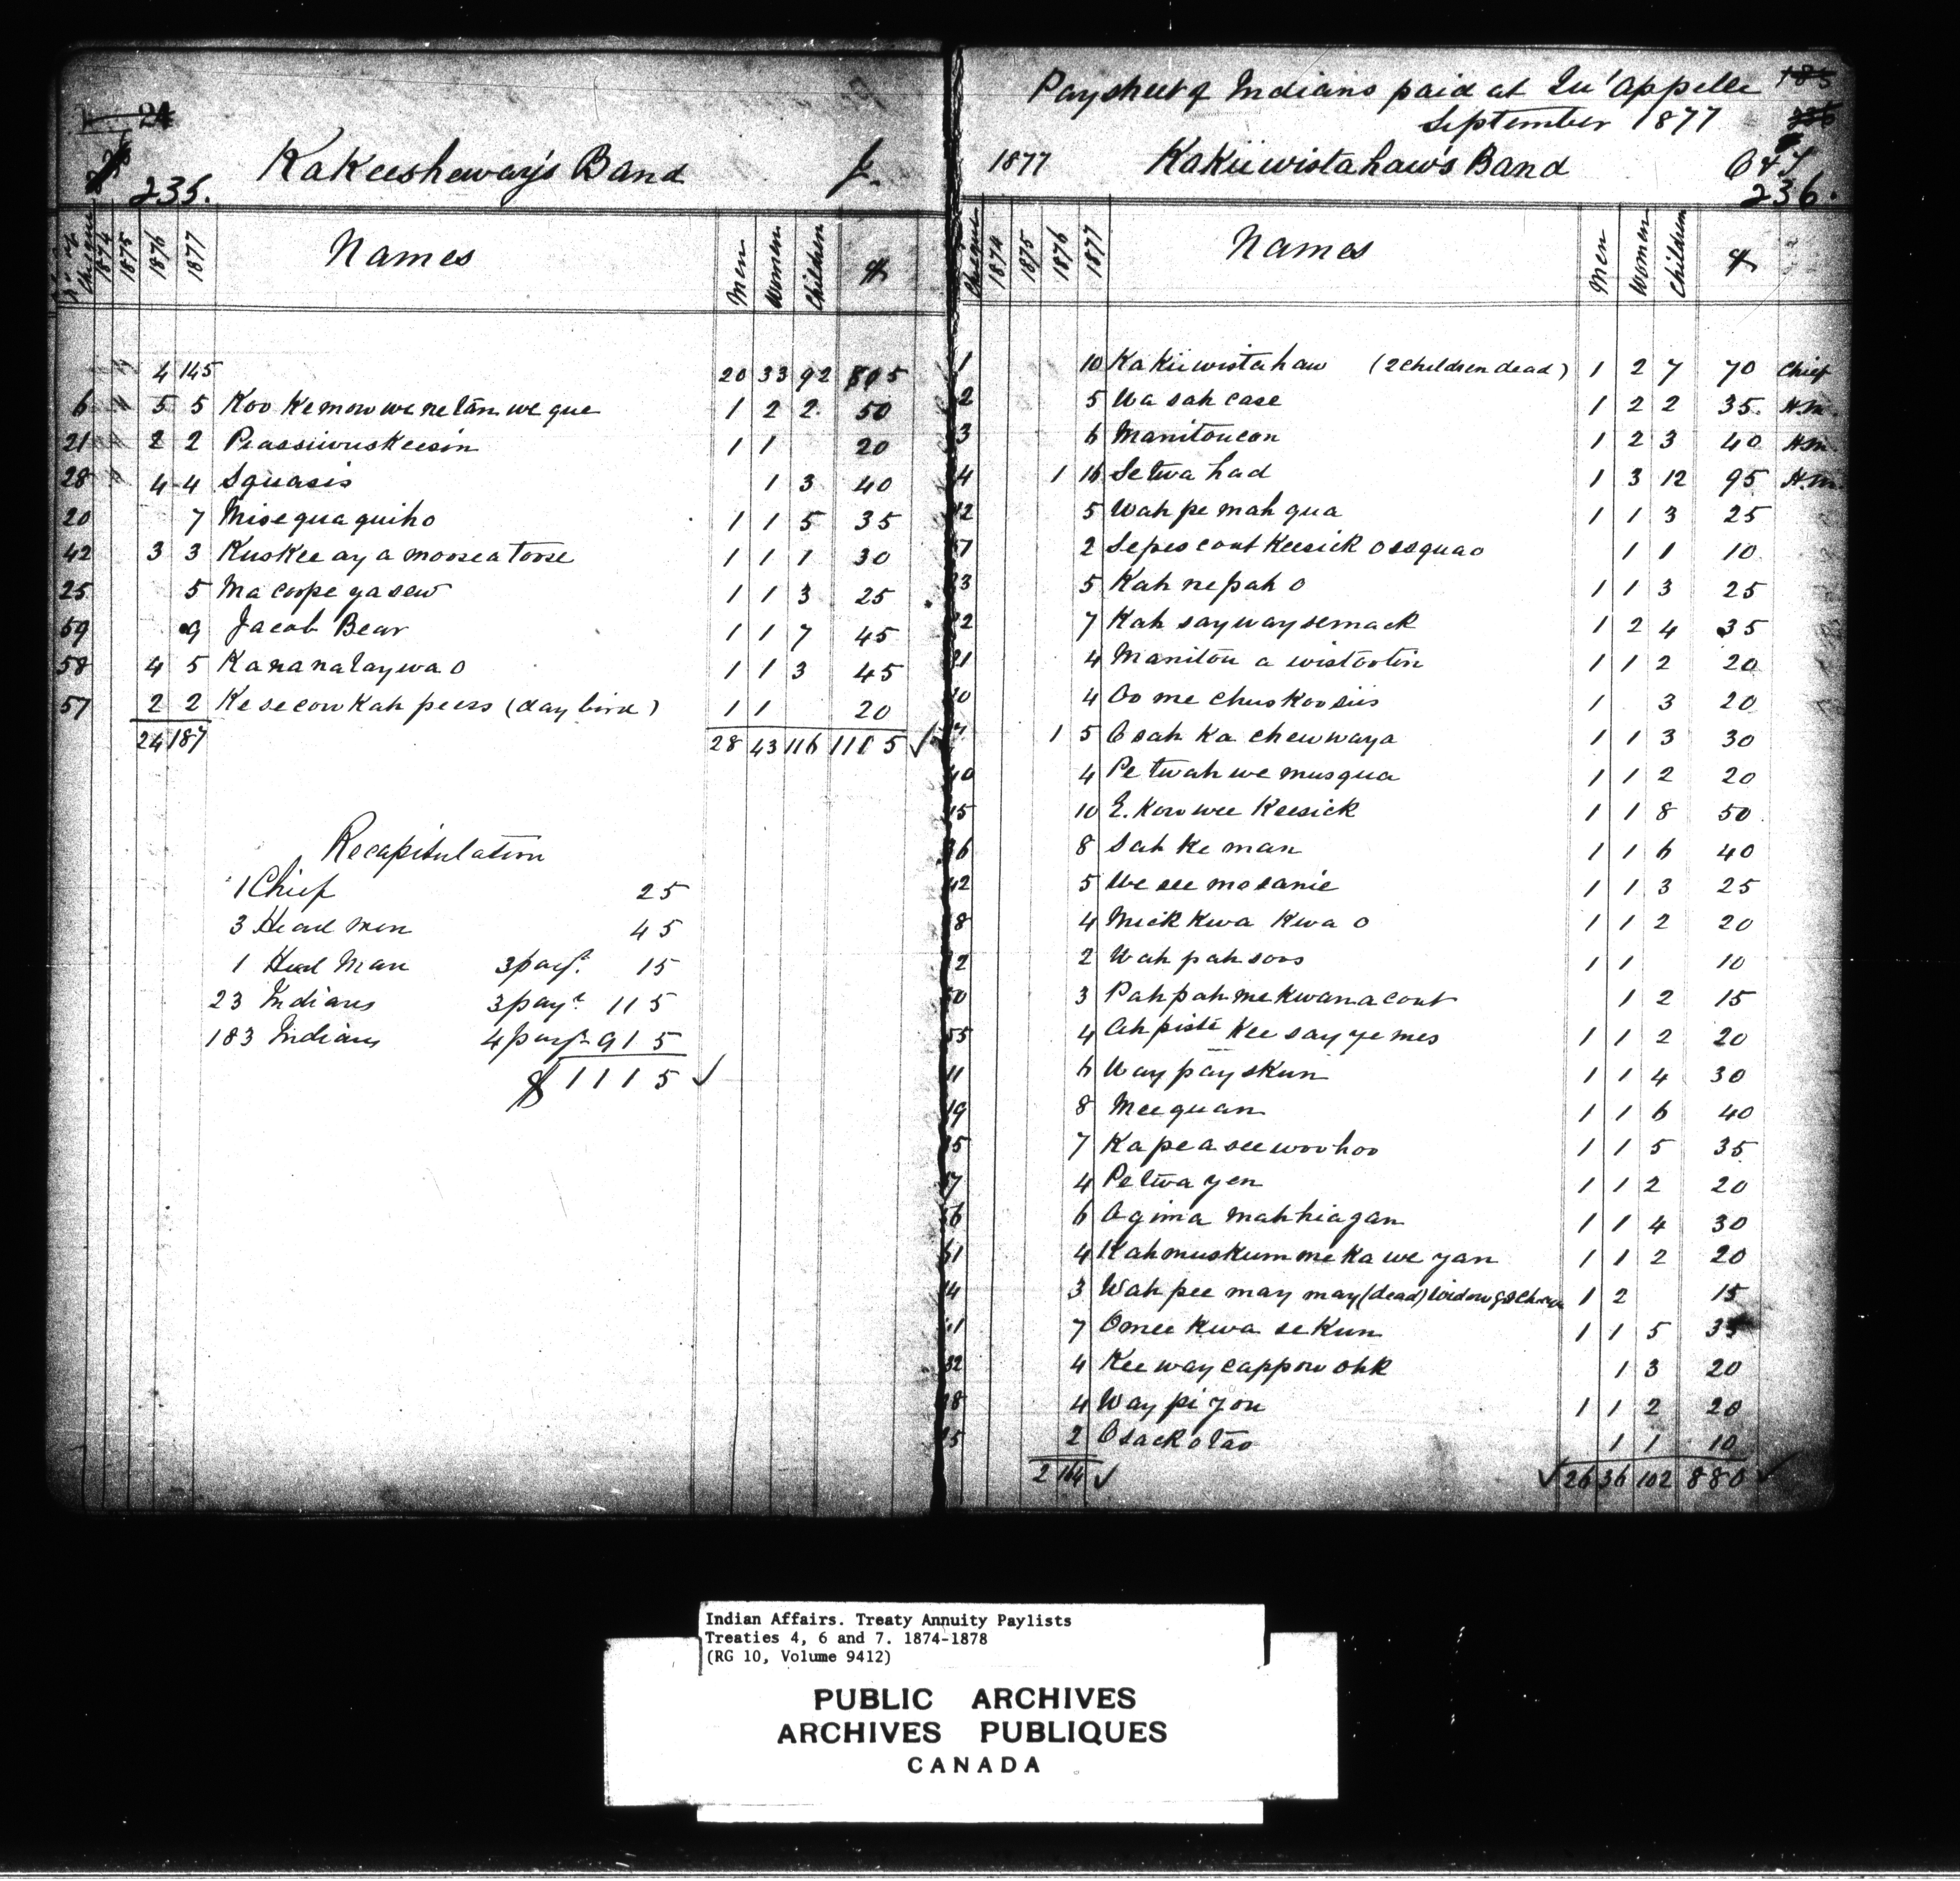 24
235. KaKeesheway's Band
Cheque 1874 1875 1876 1877 Names Men Women Children $
4 145 20 33 92 805
6 5 5 Koo Ke mow we ne tan we que 1 2 2 50
21 2 2 Peassiwuskeesin 1 1 20
28 4 4 Squasis 1 3 40
20 7 Misequaquiho 1 1 5 35
42 3 3 Kuskee ay a moosea toose 1 1 1 30
25 5 Ma coope ya sew 1 1 3 25
59 9 Jacob Bear 1 1 7 45
58 4 5 Kananataywao 1 1 3 45
57 2 2 Ke se cow Kah peess (day bird) 1 1 20
24 187 28 43 116 1115 ✓
Recapitulation
1 Chief 25
3 Head men 45
1 Head Man 3 payt. 15
23 Indians 3 payt. 115
183 Indians 4 payt. 915
$1115 ✓
Paysheet of Indians paid at Qu'Appelle
September 1877
1877 Kakiiwistahaw's Band
236.
Cheque 1874 1875 1876 1877 Names Men Women Children $
1 10 Kakiiwistahaw (2 children dead) 1 2 7 70 Chief
2 5 Wa sah case 1 2 2 35. H.m.
3 6 Manitoucon 1 2 3 40 H.m.
4 1 16 Setwa had 1 3 12 95 H.m.
5 Wah pe mah qua 1 1 3 25
2 Sepes cout Keesick o ssquao 1 1 10
5 Kah nepah o 1 1 3 25
7 Kah say way semack 1 2 4 35
4 Manitou a wistootin 1 1 2 20
4 Oo me chus koo siis 1 3 20
1 5 Osah Ka chewwaya 1 1 3 30
4 Pe twah we musqua 1 1 2 20
10 E. Kow wee Keesick 1 1 8 50
8 Sah ke man 1 1 6 40
5 We see mosanie 1 1 3 25
4 Mick Kwa Kwa o 1 1 2 20
2 Wah pah soos 1 1 10
3 Pah pah me kwana cout 1 2 15
4 Ah piste Kee say ye mes 1 1 2 20
6 Way pay skun 1 1 4 30
8 Mee quan 1 1 6 40
7 Ka pe a see woo hoo 1 1 5 35
4 Petwa yen 1 1 2 20
6 Ogima mah hiagan 1 1 4 30
4 Kahmuskum me Ka we yan 1 1 2 20
3 Wah pee may may (dead) widow 1 2 15
7 Omee Kwa se Kun 1 1 5 35
4 Kee way cappow ohk 1 3 20
4 Way pi you 1 1 2 20
2 Osack o tao 1 1 10
2 164 ✓ ✓ 26 36 102 880 ✓
Indian Affairs. Treaty Annuity Paylists
Treaties 4, 6 and 7. 1874-1878
(RG 10, Volume 9412)
PUBLIC ARCHIVES
ARCHIVES PUBLIQUES
CANADA